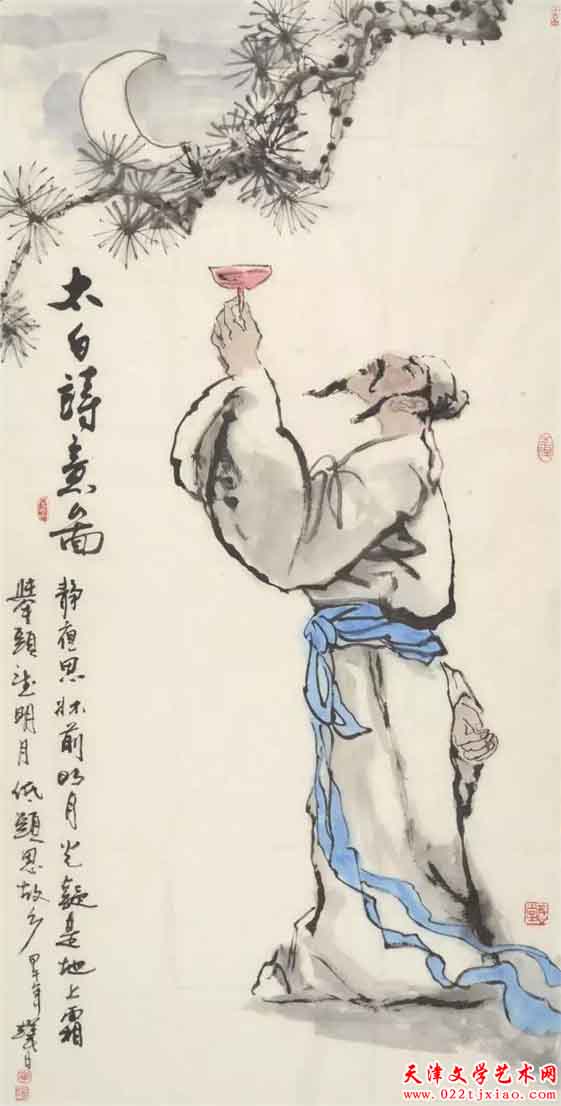 太白詩意畫
靜夜思 牀前明月光 疑是地上霜
舉頭望明月 低頭思故乡 甲午年
天津文学艺术网
www.022tjxiao.com